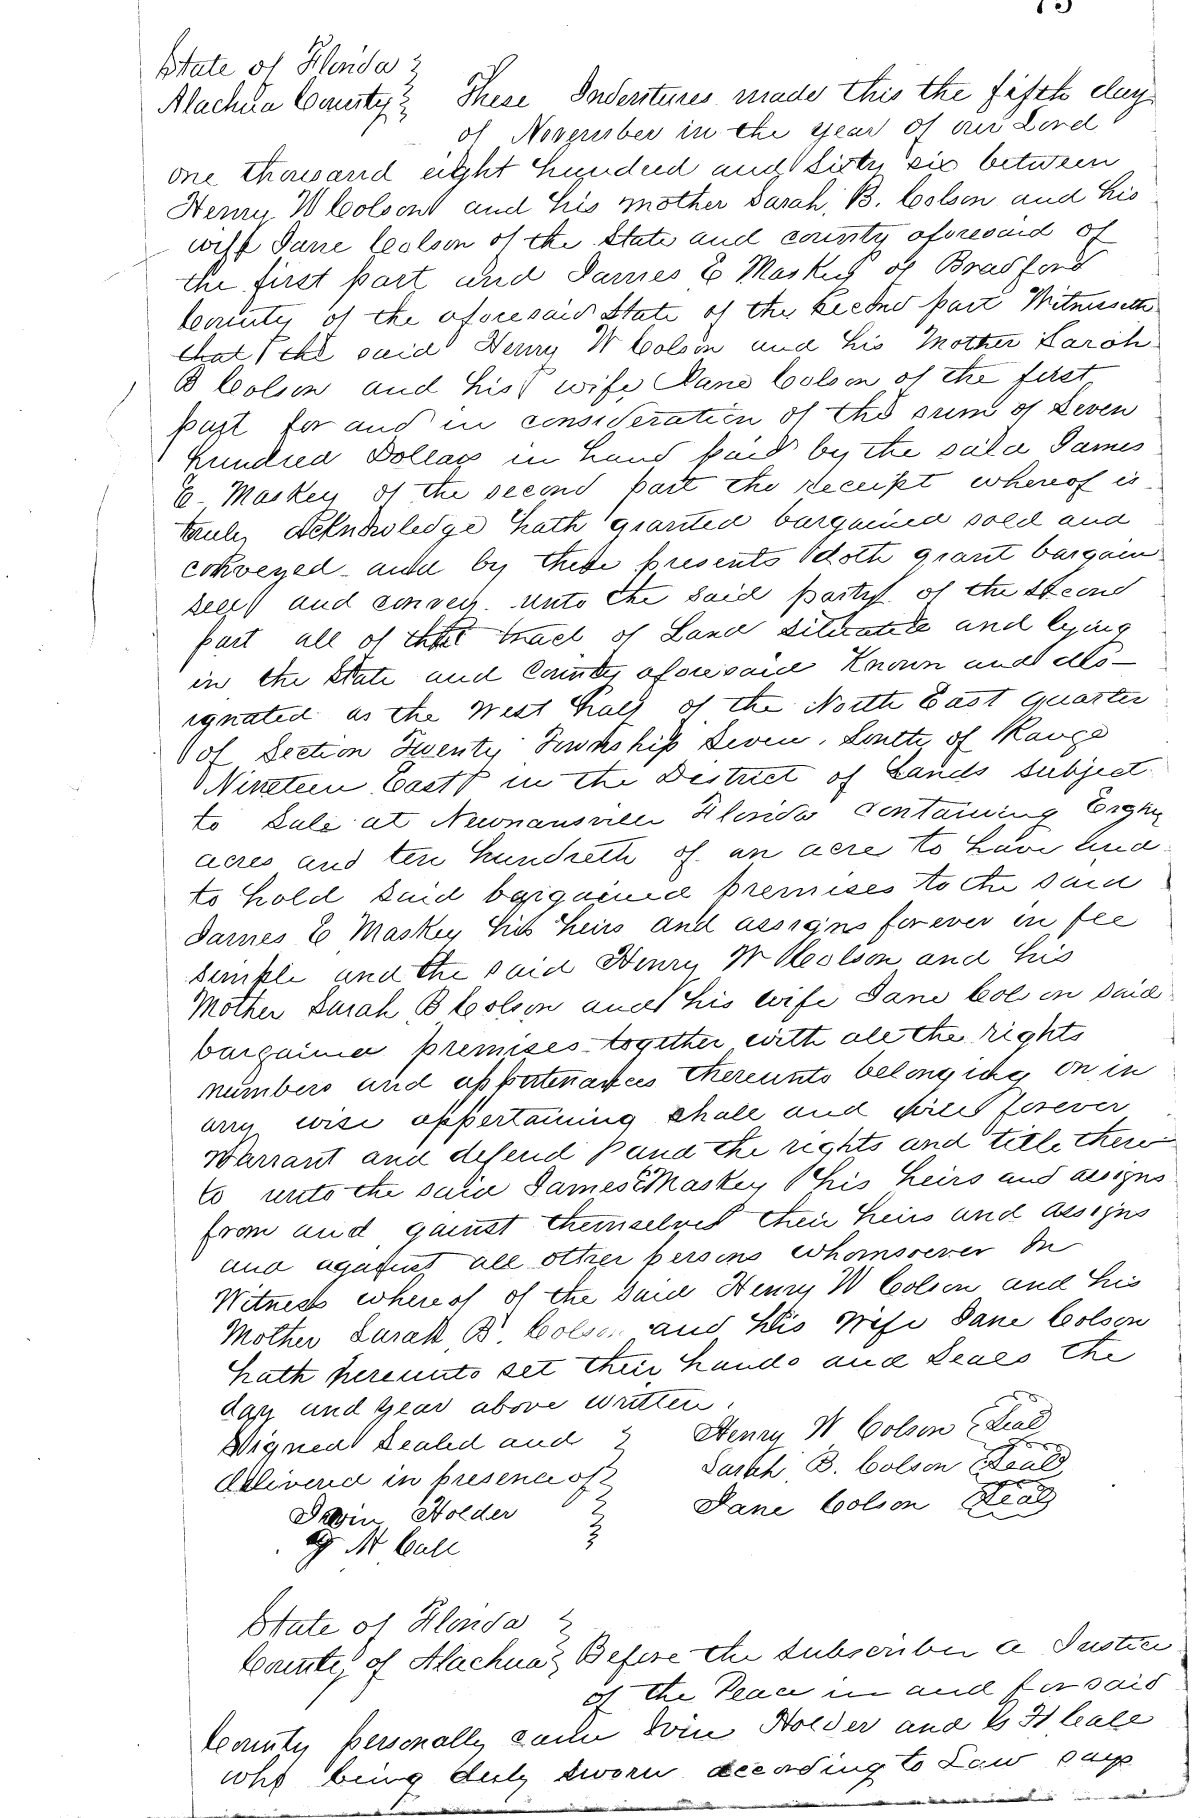 State of Florida }
Alachua County } These Indentures made this the fifth day
of November in the year of our Lord
one thousand eight hundred and Sixty six between
Henry W Colson and his mother Sarah B. Colson and his
wife Jane Colson of the State and county aforesaid of
the first part and James E Maskey of Bradford
County of the aforesaid State of the second part Witnesseth
that the said Henry W Colson and his Mother Sarah
B Colson and his wife Jane Colson of the first
part for and in consideration of the sum of Seven
hundred Dollars in hand paid by the said James
E Maskey of the second part the receipt whereof is
truly acknowledge hath granted bargained sold and
conveyed and by these presents doth grant bargain
sell and convey unto the said party of the second
part all of that tract of Land situated and lying
in the State and County aforesaid Known and des-
ignated as the West half of the North East quarter
of Section Twenty Township Seven, South of Range
Nineteen East in the District of Lands subject
to Sale at Newnansville Florida containing Eighty
acres and ten hundreth of an acre to have and
to hold said bargained premises to the said
James E Maskey his heirs and assigns forever in fee
simple and the said Henry W Colson and his
Mother Sarah B Colson and his wife Jane Colson said
bargained premises together with all the rights
numbers and appertenances thereunto belonging or in
any wise appertaining shall and will forever
Warrant and defend and the rights and title there
to unto the said James E Maskey his heirs and assigns
from and gainst themselves their heirs and assigns
and against all other persons whomsoever In
Witness whereof of the said Henry W Colson and his
Mother Sarah B. Colson and his Wife Jane Colson
hath hereunto set their hands and Seals the
day and year above written.
Signed Sealed and } Henry W Colson (Seal)
delivered in presence of } Sarah B. Colson (Seal)
Irvin Holder } Jane Colson (Seal)
G H Call
State of Florida }
County of Alachua } Before the Subscriber a Justice
of the Peace in and for said
County personally came Irvin Holder and G H Call
who being duly sworn according to Law says